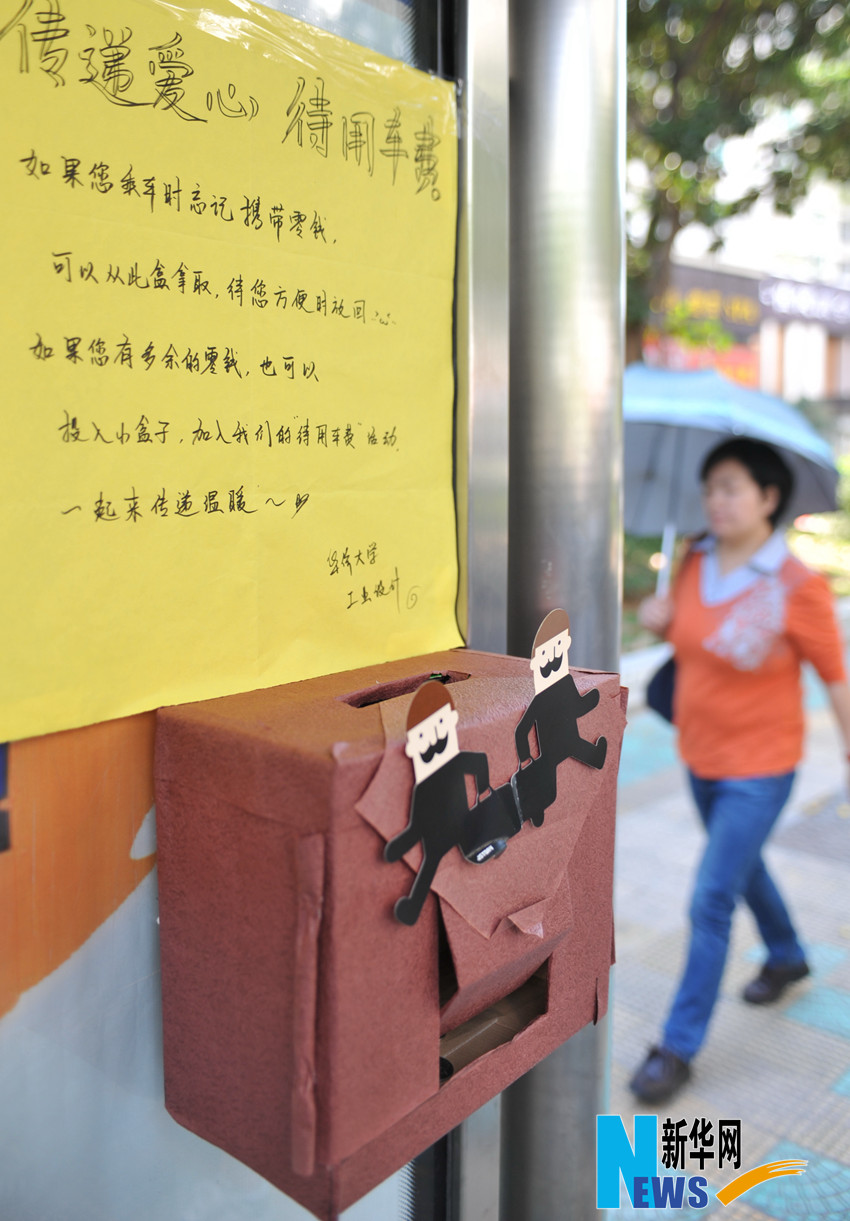 传递爱心 待用车费。
如果您乘车时忘记携带零钱，
可以从此盒拿取，待您方便时放回
如果您有多余的零钱，也可以
投入小盒子，加入我们的“待用车费”活动，
一起来传递温暖~
华侨大学
工业设计
新华网
NEWS